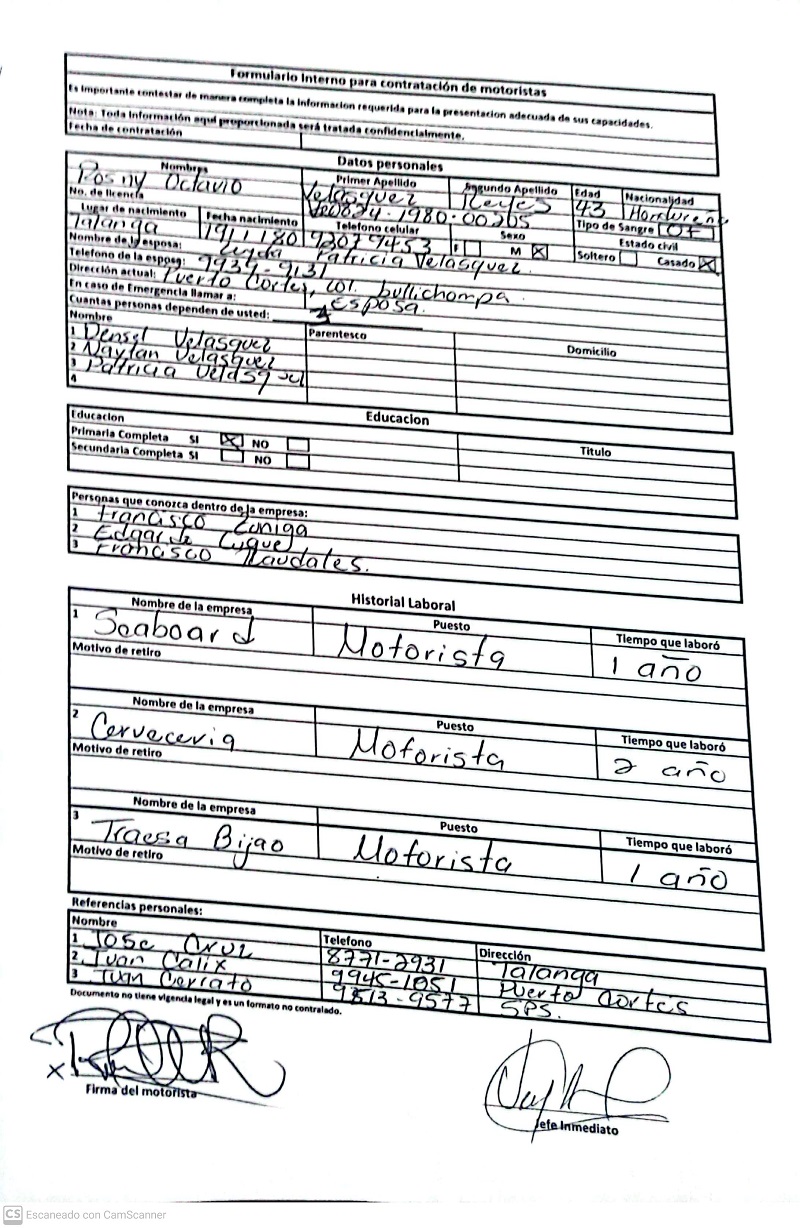 Formulario Interno para contratación de motoristas
Es importante contestar de manera completa la informacion requerida para la presentacion adecuada de sus capacidades.
Nota: Toda información aquí proporcionada será tratada confidencialmente.
Fecha de contratación
Datos personales
Nombres Primer Apellido Segundo Apellido Edad Nacionalidad
Octavio Velasquez Reyes 43 Hondureña
No. de licencia 0824-1980-00265 Tipo de Sangre
Lugar de nacimiento Fecha nacimiento Telefono celular Sexo Estado civil
Talanga 9207 9453 F M X Soltero Casado X
Nombre de la esposa: Patricia Velasquez
Telefono de la esposa: 9939-9131
Dirección actual: Puerto Cortes, col. bullichompa
En caso de Emergencia llamar a: Esposa.
Cuantas personas dependen de usted: 3
Nombre Parentesco Domicilio
1 Densel Velasquez
2 Naylan Velasquez
3 Patricia Velasquez
4
Educacion
Educacion Titulo
Primaria Completa SI X NO
Secundaria Completa SI NO
Personas que conozca dentro de la empresa:
1 Francisco Zuniga
2
3 Francisco
Historial Laboral
Nombre de la empresa Puesto Tiempo que laboró
1 Seaboard Motorista 1 año
Motivo de retiro
Nombre de la empresa Puesto Tiempo que laboró
2 Cerveceria Motorista 2 año
Motivo de retiro
Nombre de la empresa Puesto Tiempo que laboró
3 Traesa Bijao Motorista 1 año
Motivo de retiro
Referencias personales:
Nombre Telefono Dirección
1 Jose Cruz 8771-2931 Talanga
2. Ivan Calix 9945-1051 Puerto Cortes
3 Ivan Cerrato 9813-9577 SPS.
Documento no tiene vigencia legal y es un formato no contralado.
X
Firma del motorista
Jefe Inmediato
CS Escaneado con CamScanner